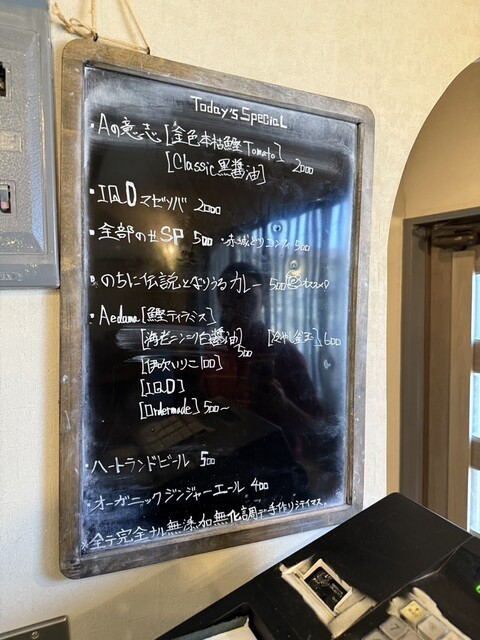 Today's Special
・Aの意志 [金色本枯鰹 Tomato]
[Classic 黒醤油] 2000
・IQD マゼソバ 2000
・全部のせSP 500 ・赤城どりコンフィ 500
・のちに伝説となりうるカレー 500 オススメ
・Aedama [鰹ティラミス]
[海老ニンニク白醤油] 500 [冷やし金玉] 600
[伊吹いりこ100]
[IQD]
[Ordermade] 500〜
・ハートランドビール 500
・オーガニックジンジャーエール 400
※全テ完全ナル無添加無化調デ手作リシテイマス。